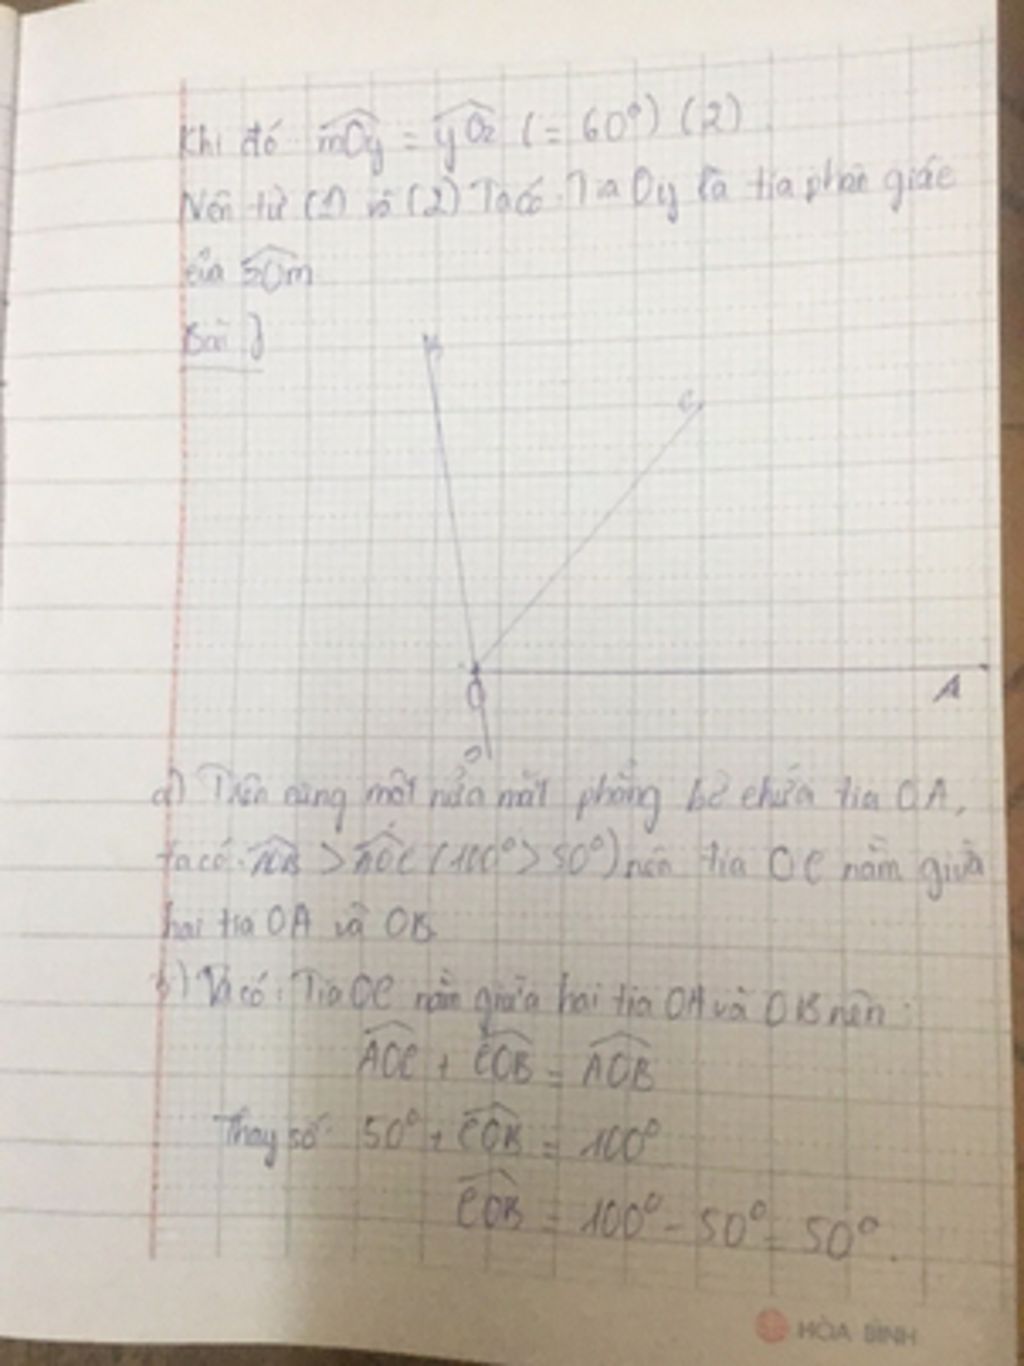 Khi đó mOy = yOz (= 60°) (2)
Nên từ (1) và (2) Ta có Tia Oy là tia phân giác
của zOm
Bài
B
C
O
A
D
a) Trên cùng một nửa mặt phẳng bờ chứa tia OA,
ta có: AOB > AOC (100° > 50°) nên tia OC nằm giữa
hai tia OA và OB
b) Ta có: Tia OC nằm giữa hai tia OA và OB nên:
AOC + COB = AOB
Thay số: 50° + COB = 100°
COB = 100° - 50° = 50°.
HÒA BÌNH